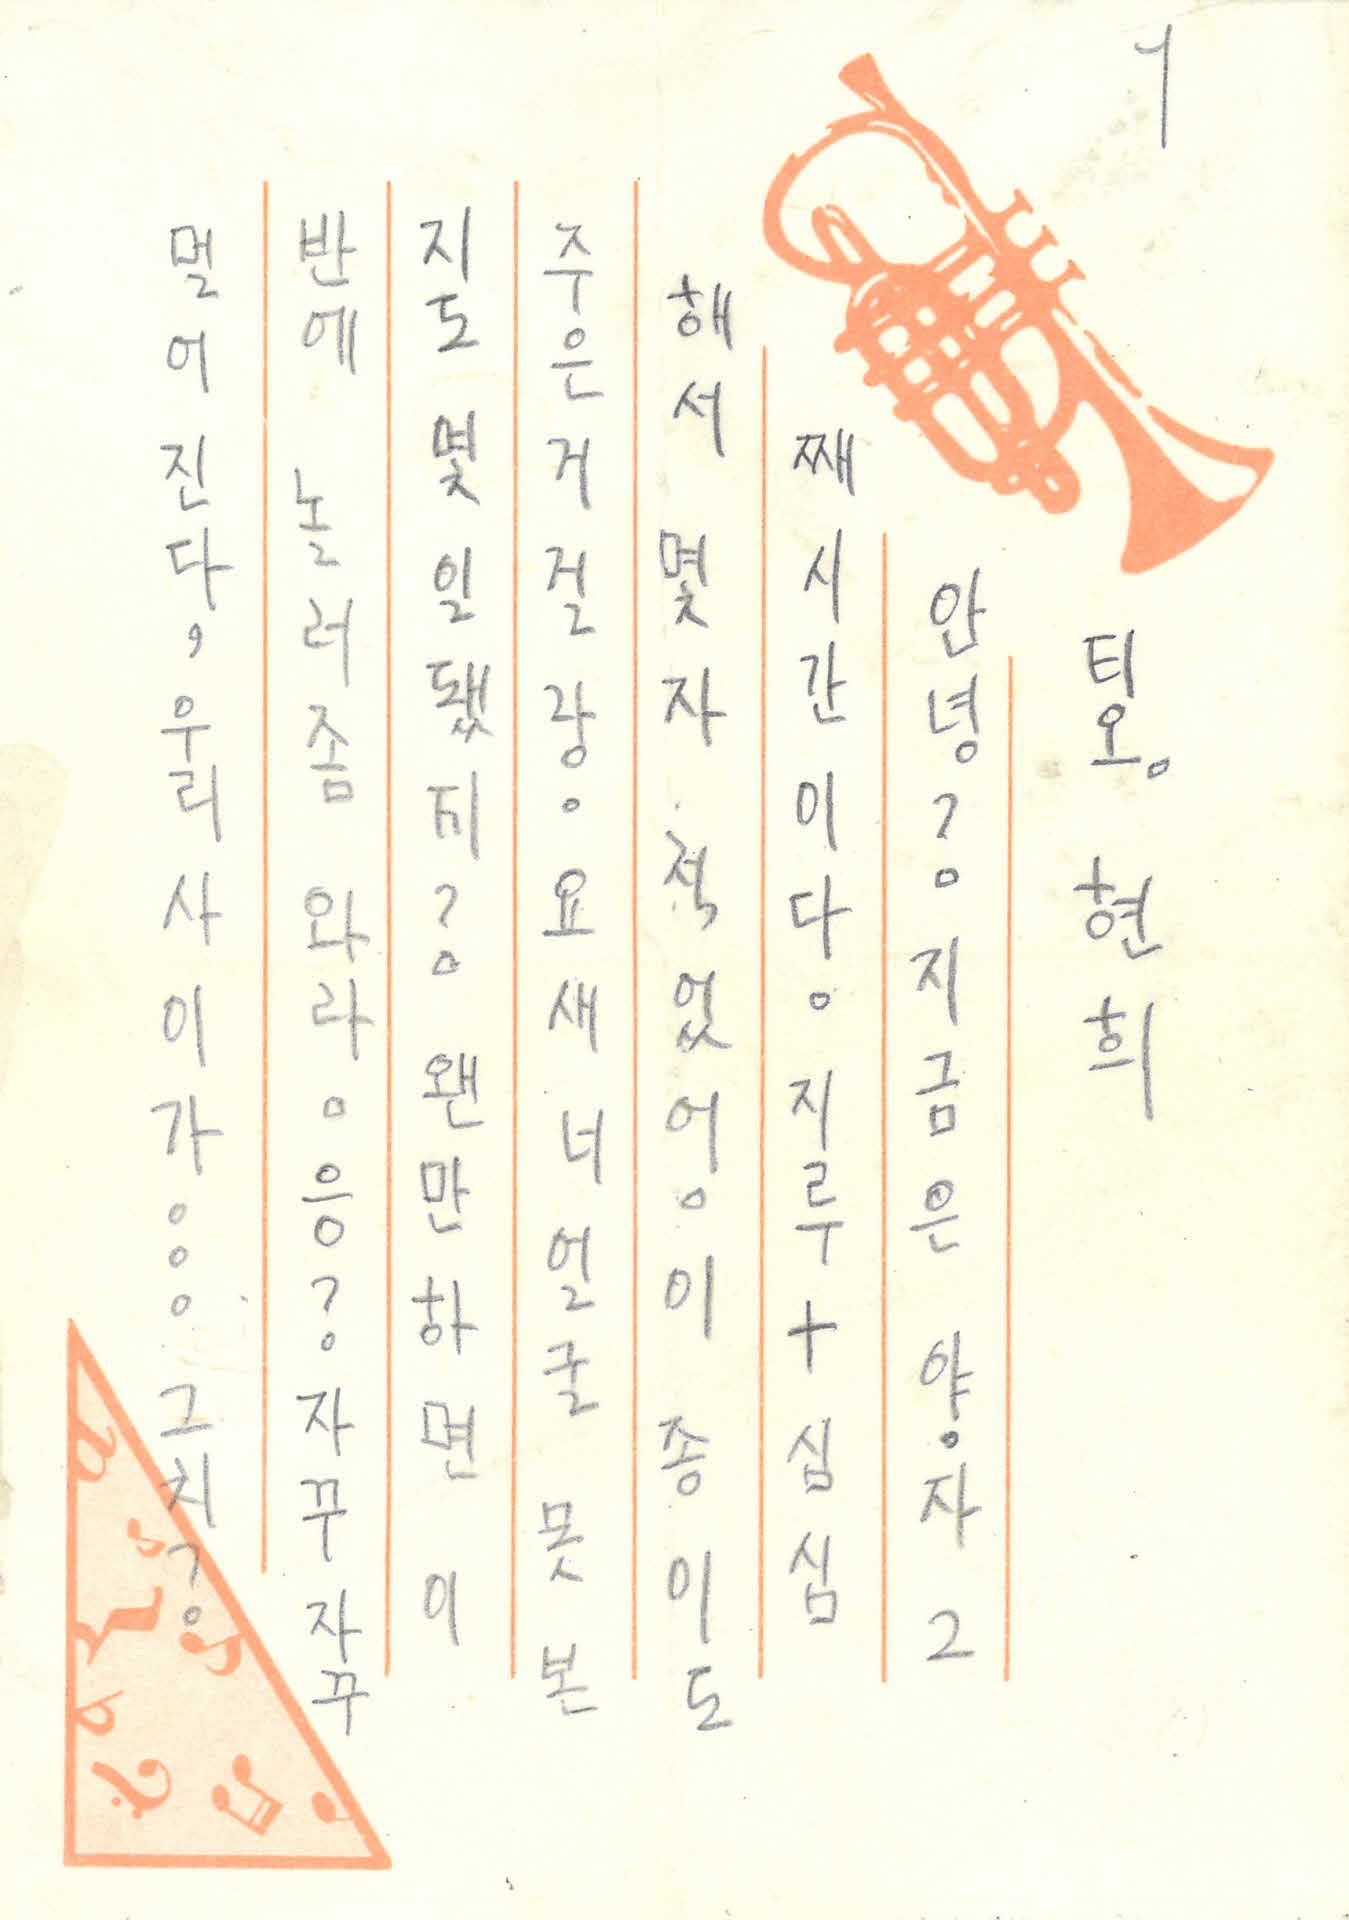 1
틔오. 현희
안녕? 지금은 양.자 2
째 시간이다. 지루+심심
해서 몇자 적었어. 이 종이도
주은거걸랑. 요새 너 얼굴 못본
지도 몇일됐지? 왠만하면 이
반에 놀러좀 와라. 응? 자꾸자꾸
멀어진다, 우리 사이가... 그치?